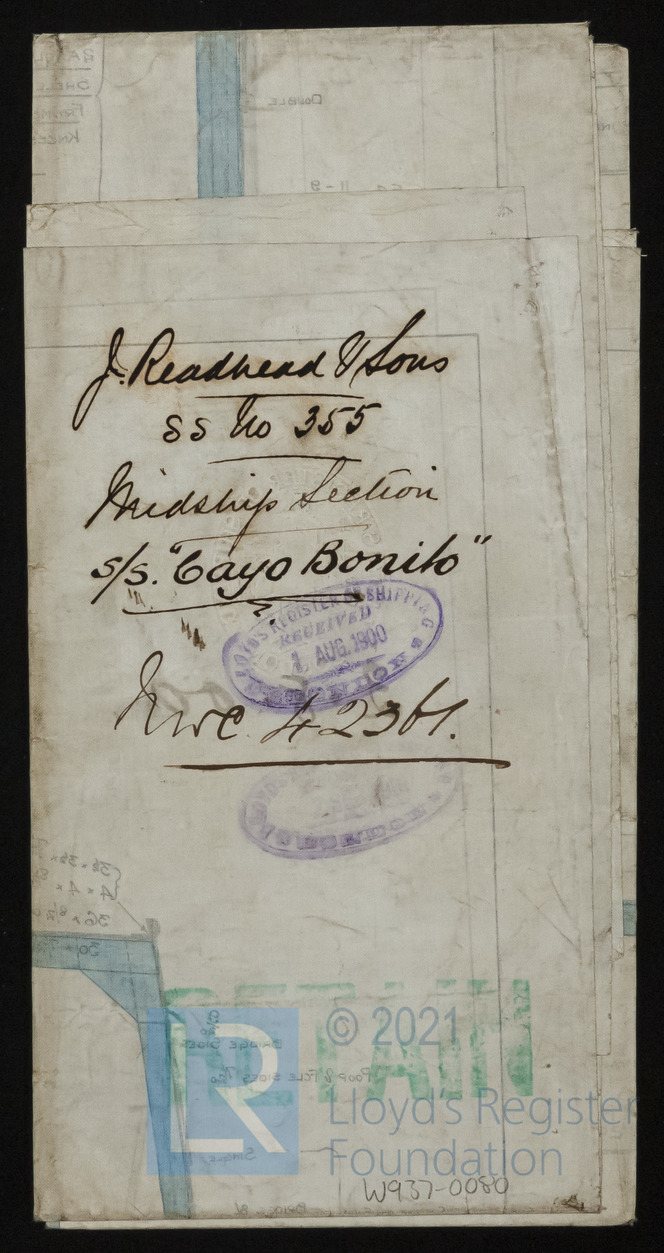 DOUBLE
J. Readhead & Sons
SS No 355
Midship Section
s/s. "Cayo Bonito"
LLOYD'S REGISTER OF SHIPPING
RECEIVED
1 AUG. 1900
Nwc. 42361.
36 x
4 x 4 x
36 x
30 x
RETAIN
BRIDGE SIDES
POOP & FCLE SIDES
SINGLE
LR
© 2021
Lloyd's Register
Foundation
W937-0080